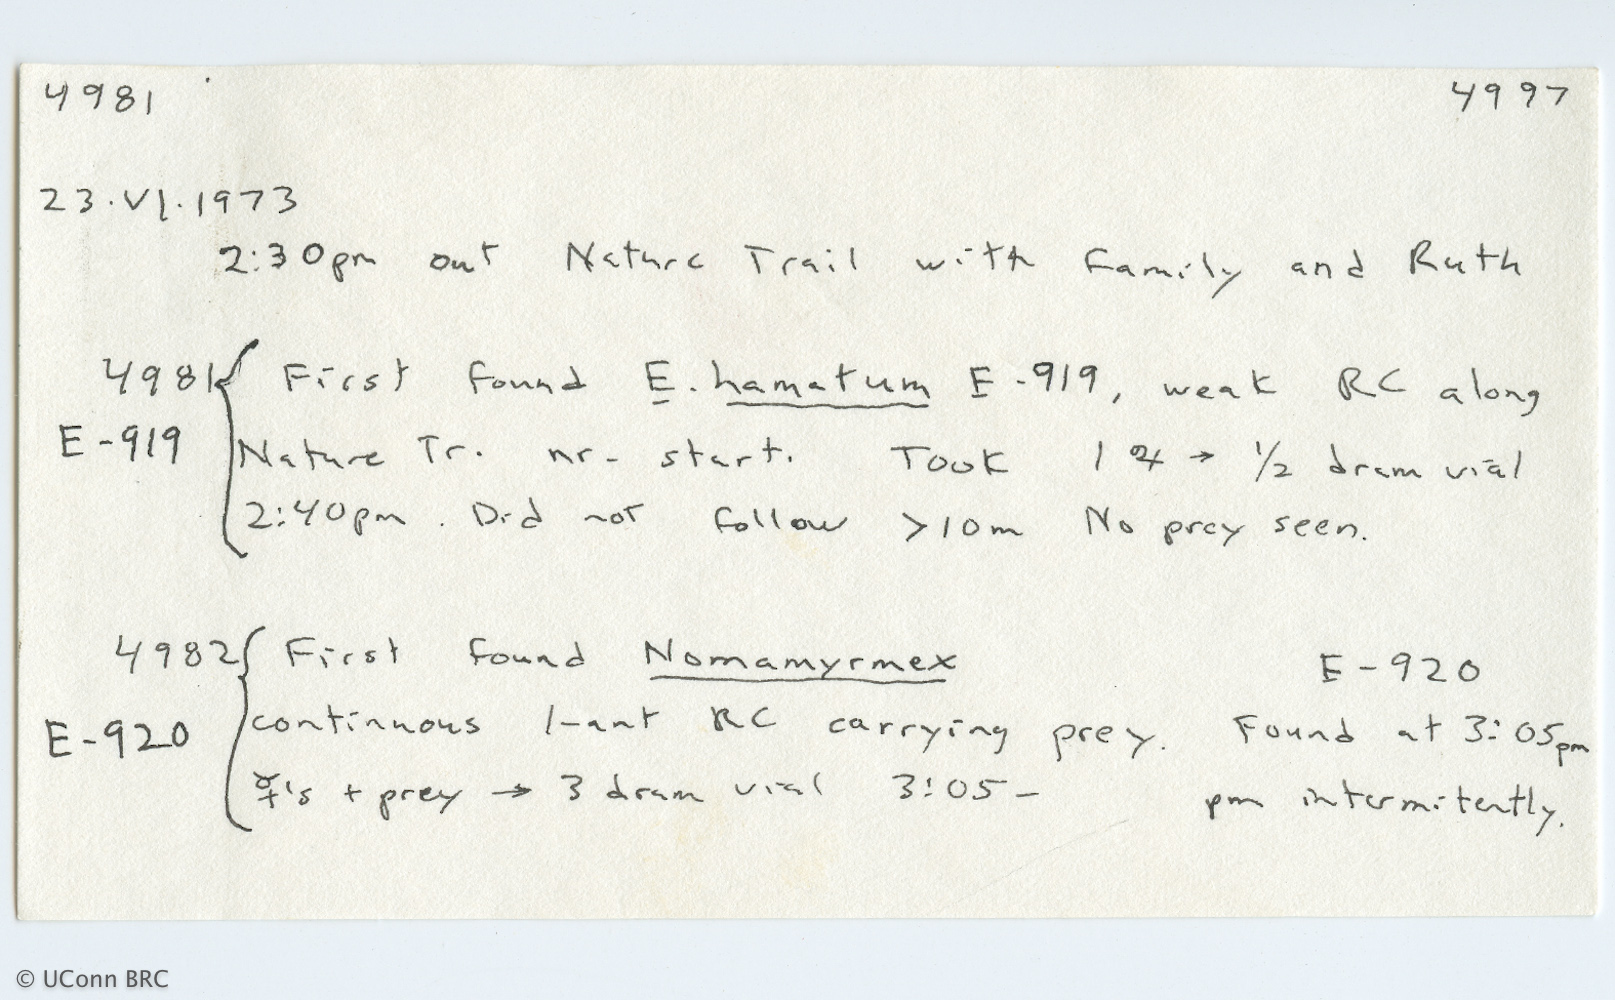 4981 4997
23.VI.1973
2:30pm out Nature Trail with family and Ruth
4981 First found E. hamatum E-919, weak RC along
E-919 Nature Tr. nr. start. Took 1 ♃ → 1/2 dram vial
2:40pm. Did not follow >10m No prey seen.
4982 First found Nomamyrmex E-920
E-920 continuous 1-ant RC carrying prey. Found at 3:05pm
☿'s + prey → 3 dram vial 3:05– pm intermitently.
© UConn BRC